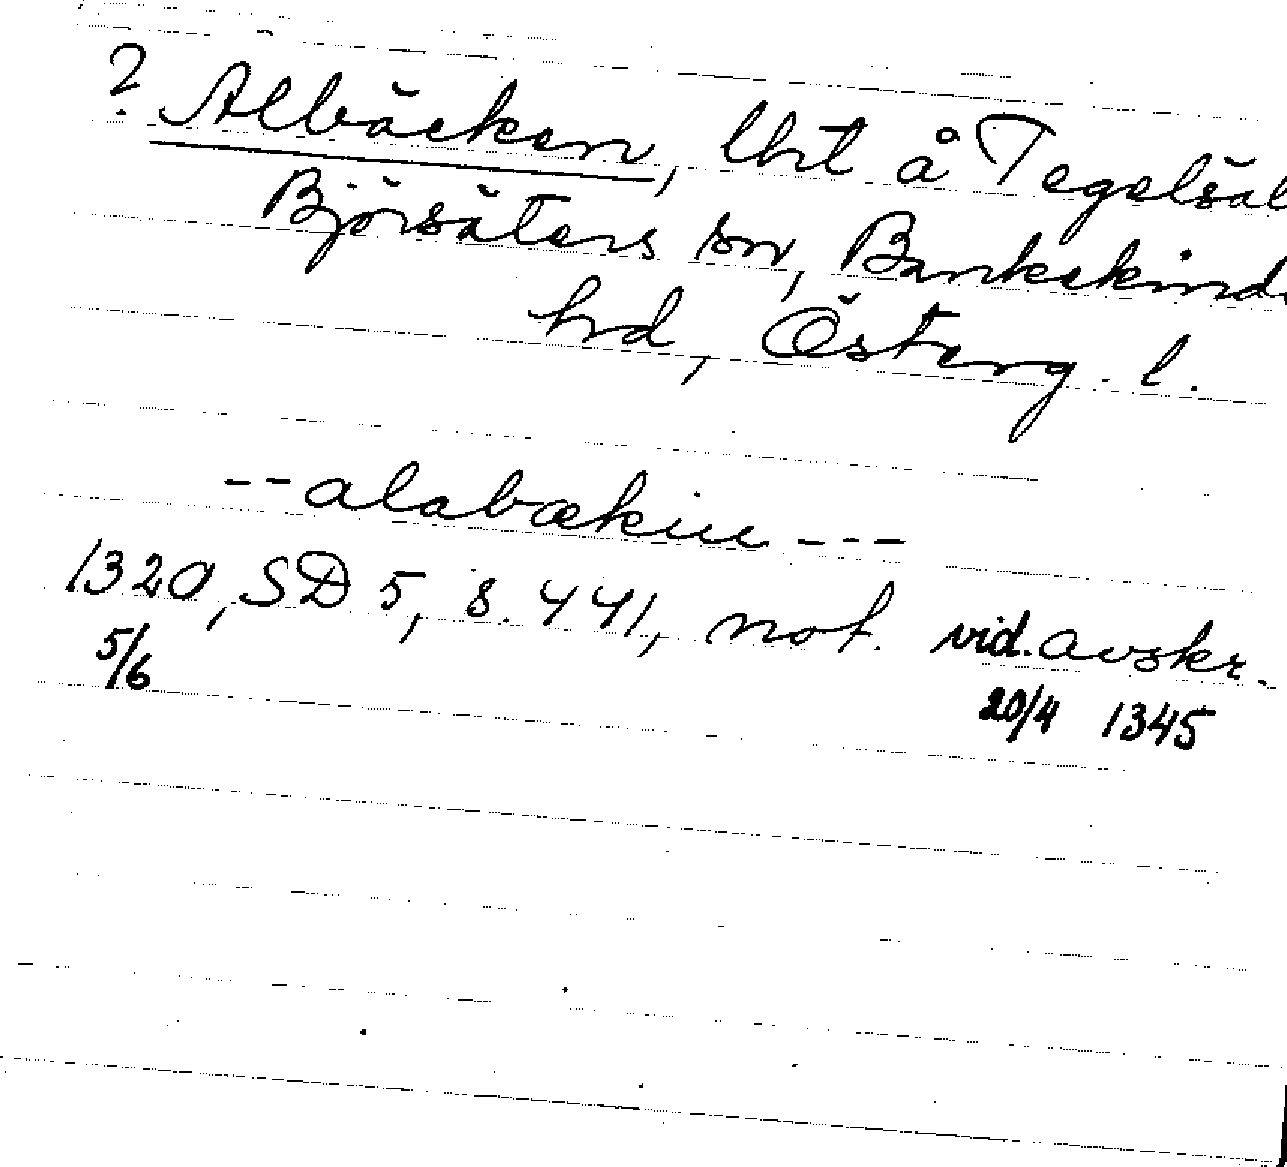 ? Albäcken, lht å Tegelsät
Björsäters sn, Bankekinds
hd, Österg. l.
--alabækiu---
1320, SD 5, s. 441, not. vid. avskr.
5/6 20/4 1345